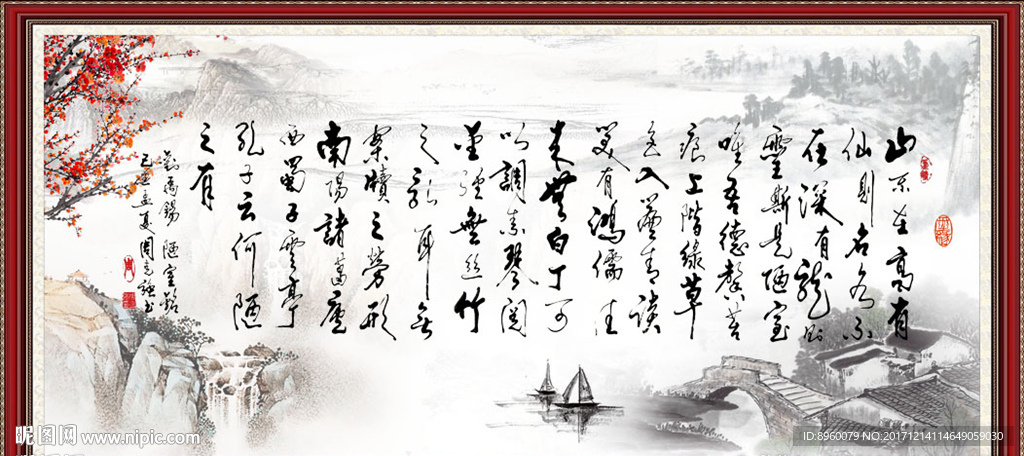 山不在高有
仙则名水不
在深有龍则
靈斯是陋室
唯吾德馨苔
痕上階緑草
色入簾青談
笑有鴻儒往
来無白丁可
以調素琴閲
金經無丝竹
之亂耳無
案牘之勞形
南陽諸葛廬
西蜀子雲亭
孔子云何陋
之有
劉禹錫 陋室銘
孟夏周书
昵图网 www.nipic.com
ID:8960079 NO:20171214114649059030